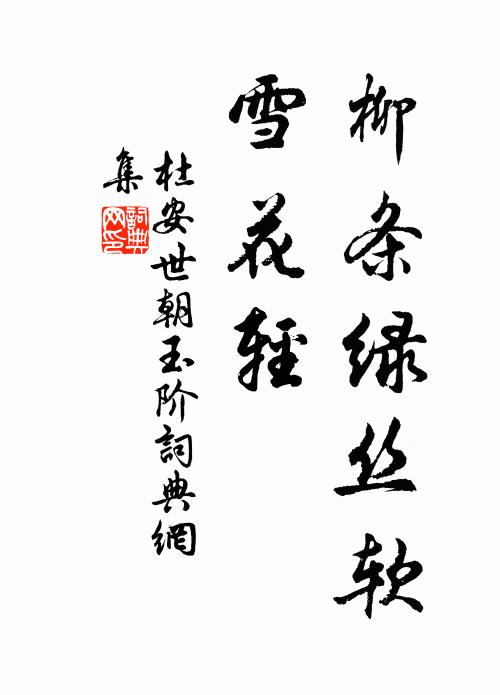 柳条绿丝软
雪花輕
杜安世朝玉阶詞典網
集
詞典网印